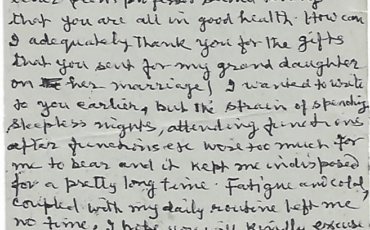 that you are all in good health. How can
I adequately thank you for the gifts
that you sent for my grand daughter
on her marriage! I wanted to write
to you earlier, but the strain of spending
sleepless nights, attending functions
after functions etc were too much for
me to bear and it kept me indisposed
for a pretty long time. Fatigue and cold,
coupled with my daily routine left me
no time, I hope you will kindly excuse